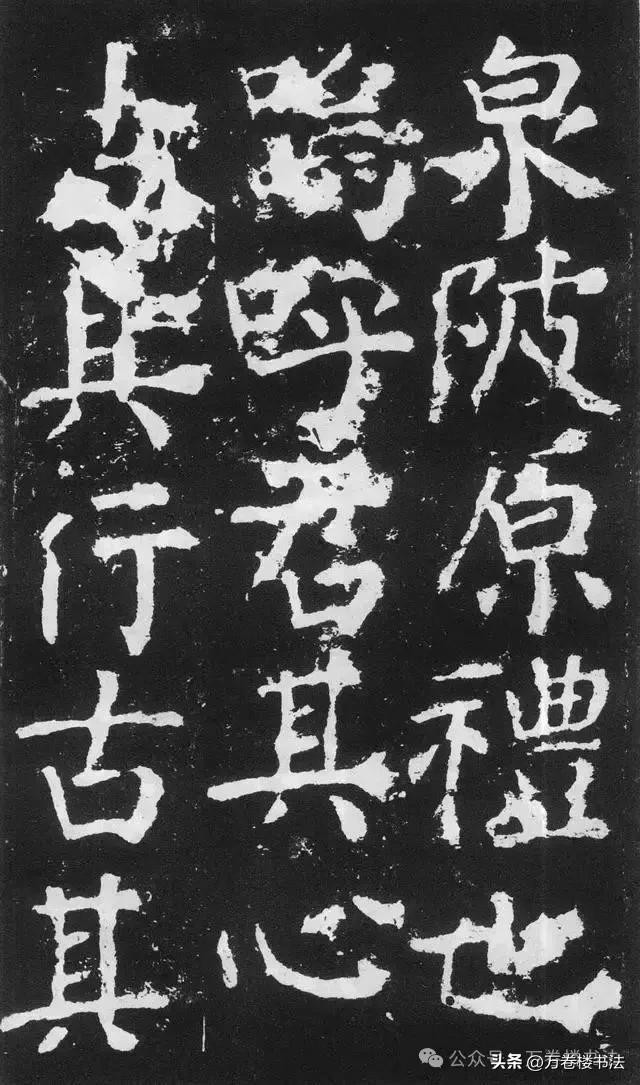 泉陂原禮也
嗚呼君其心
古其行古其
公众号·万卷楼书法
头条 @万卷楼书法